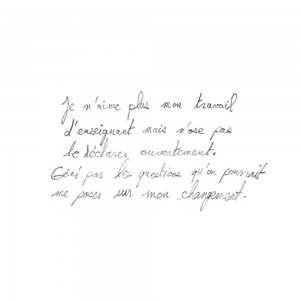 Je n'aime plus mon travail
d'enseignant mais n'ose pas
le déclarer ouvertement.
Géné par les questions qu'on pourrait
me poser sur mon changement.